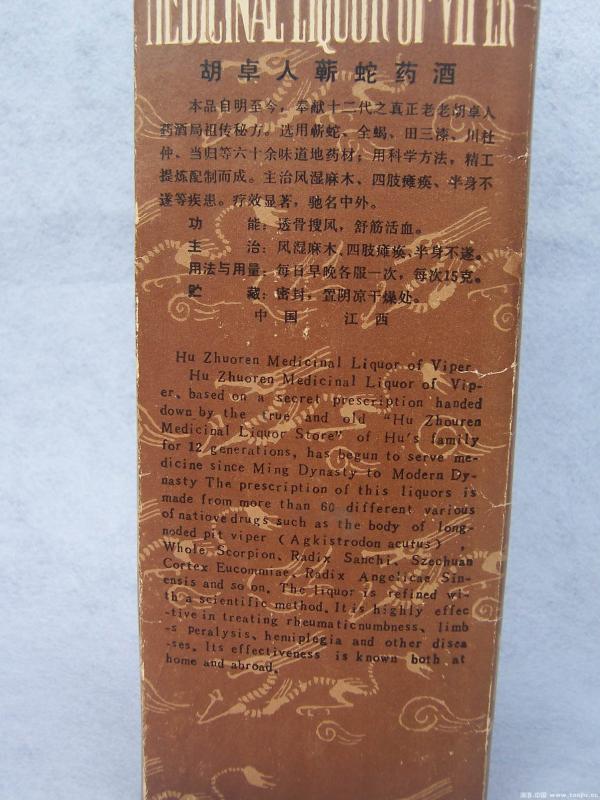 MEDICINAL LIQUOR OF VIPER
胡卓人蕲蛇药酒
本品自明至今，奉献十二代之真正老老胡卓人
药酒局祖传秘方，选用蕲蛇、全蝎、田三漆、川杜
仲、当归等六十余味道地药材；用科学方法，精工
提炼配制而成。主治风湿麻木、四肢瘫痪、半身不
遂等疾患。疗效显著，驰名中外。
功　　能：透骨搜风，舒筋活血。
主　　治：风湿麻木、四肢瘫痪、半身不遂。
用法与用量：每日早晚各服一次，每次15克。
贮　　藏：密封，置阴凉干燥处。
中国　江西
Hu Zhuoren Medicinal Liquor of Viper
Hu Zhuoren Medicinal Liquor of Vip-
er, based on a secret prescription handed
down by the true and old "Hu Zhouren
Medicinal Liquor Store" of Hu's family
for 12 generations, has begun to serve me-
dicine since Ming Dynasty to Modern Dy-
nasty The prescription of this liquors is
made from more than 60 different various
of natiove drugs such as the body of long-
noded pit viper (Agkistrodon acutus)
Whole Scorpion, Radix Sanchi, Szechuan
Cortex Eucommiae, Radix Angelicae Sin-
ensis and so on. The liquor is refined wi-
th a scientific method. It is highly effec
-tive in treating rheumatic numbness, limb
-s peralysis, hemiplegia and other disea
-ses. Its effectiveness is known both at
home and abroad.